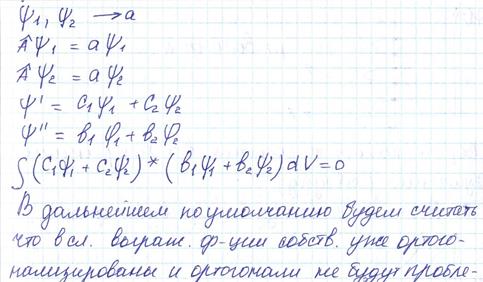 ψ₁, ψ₂ → a
Âψ₁ = aψ₁
Âψ₂ = aψ₂
ψ' = C₁ψ₁ + C₂ψ₂
ψ'' = в₁φ₁ + в₂φ₂
∫(C₁ψ₁ + C₂ψ₂)*(в₁ψ₁ + в₂ψ₂)dV = 0
В дальнейшем по умолчанию будем считать
что в сл. выраж. ф-ции собств. уже ортого-
нализированы и ортогонали не будут пробле-